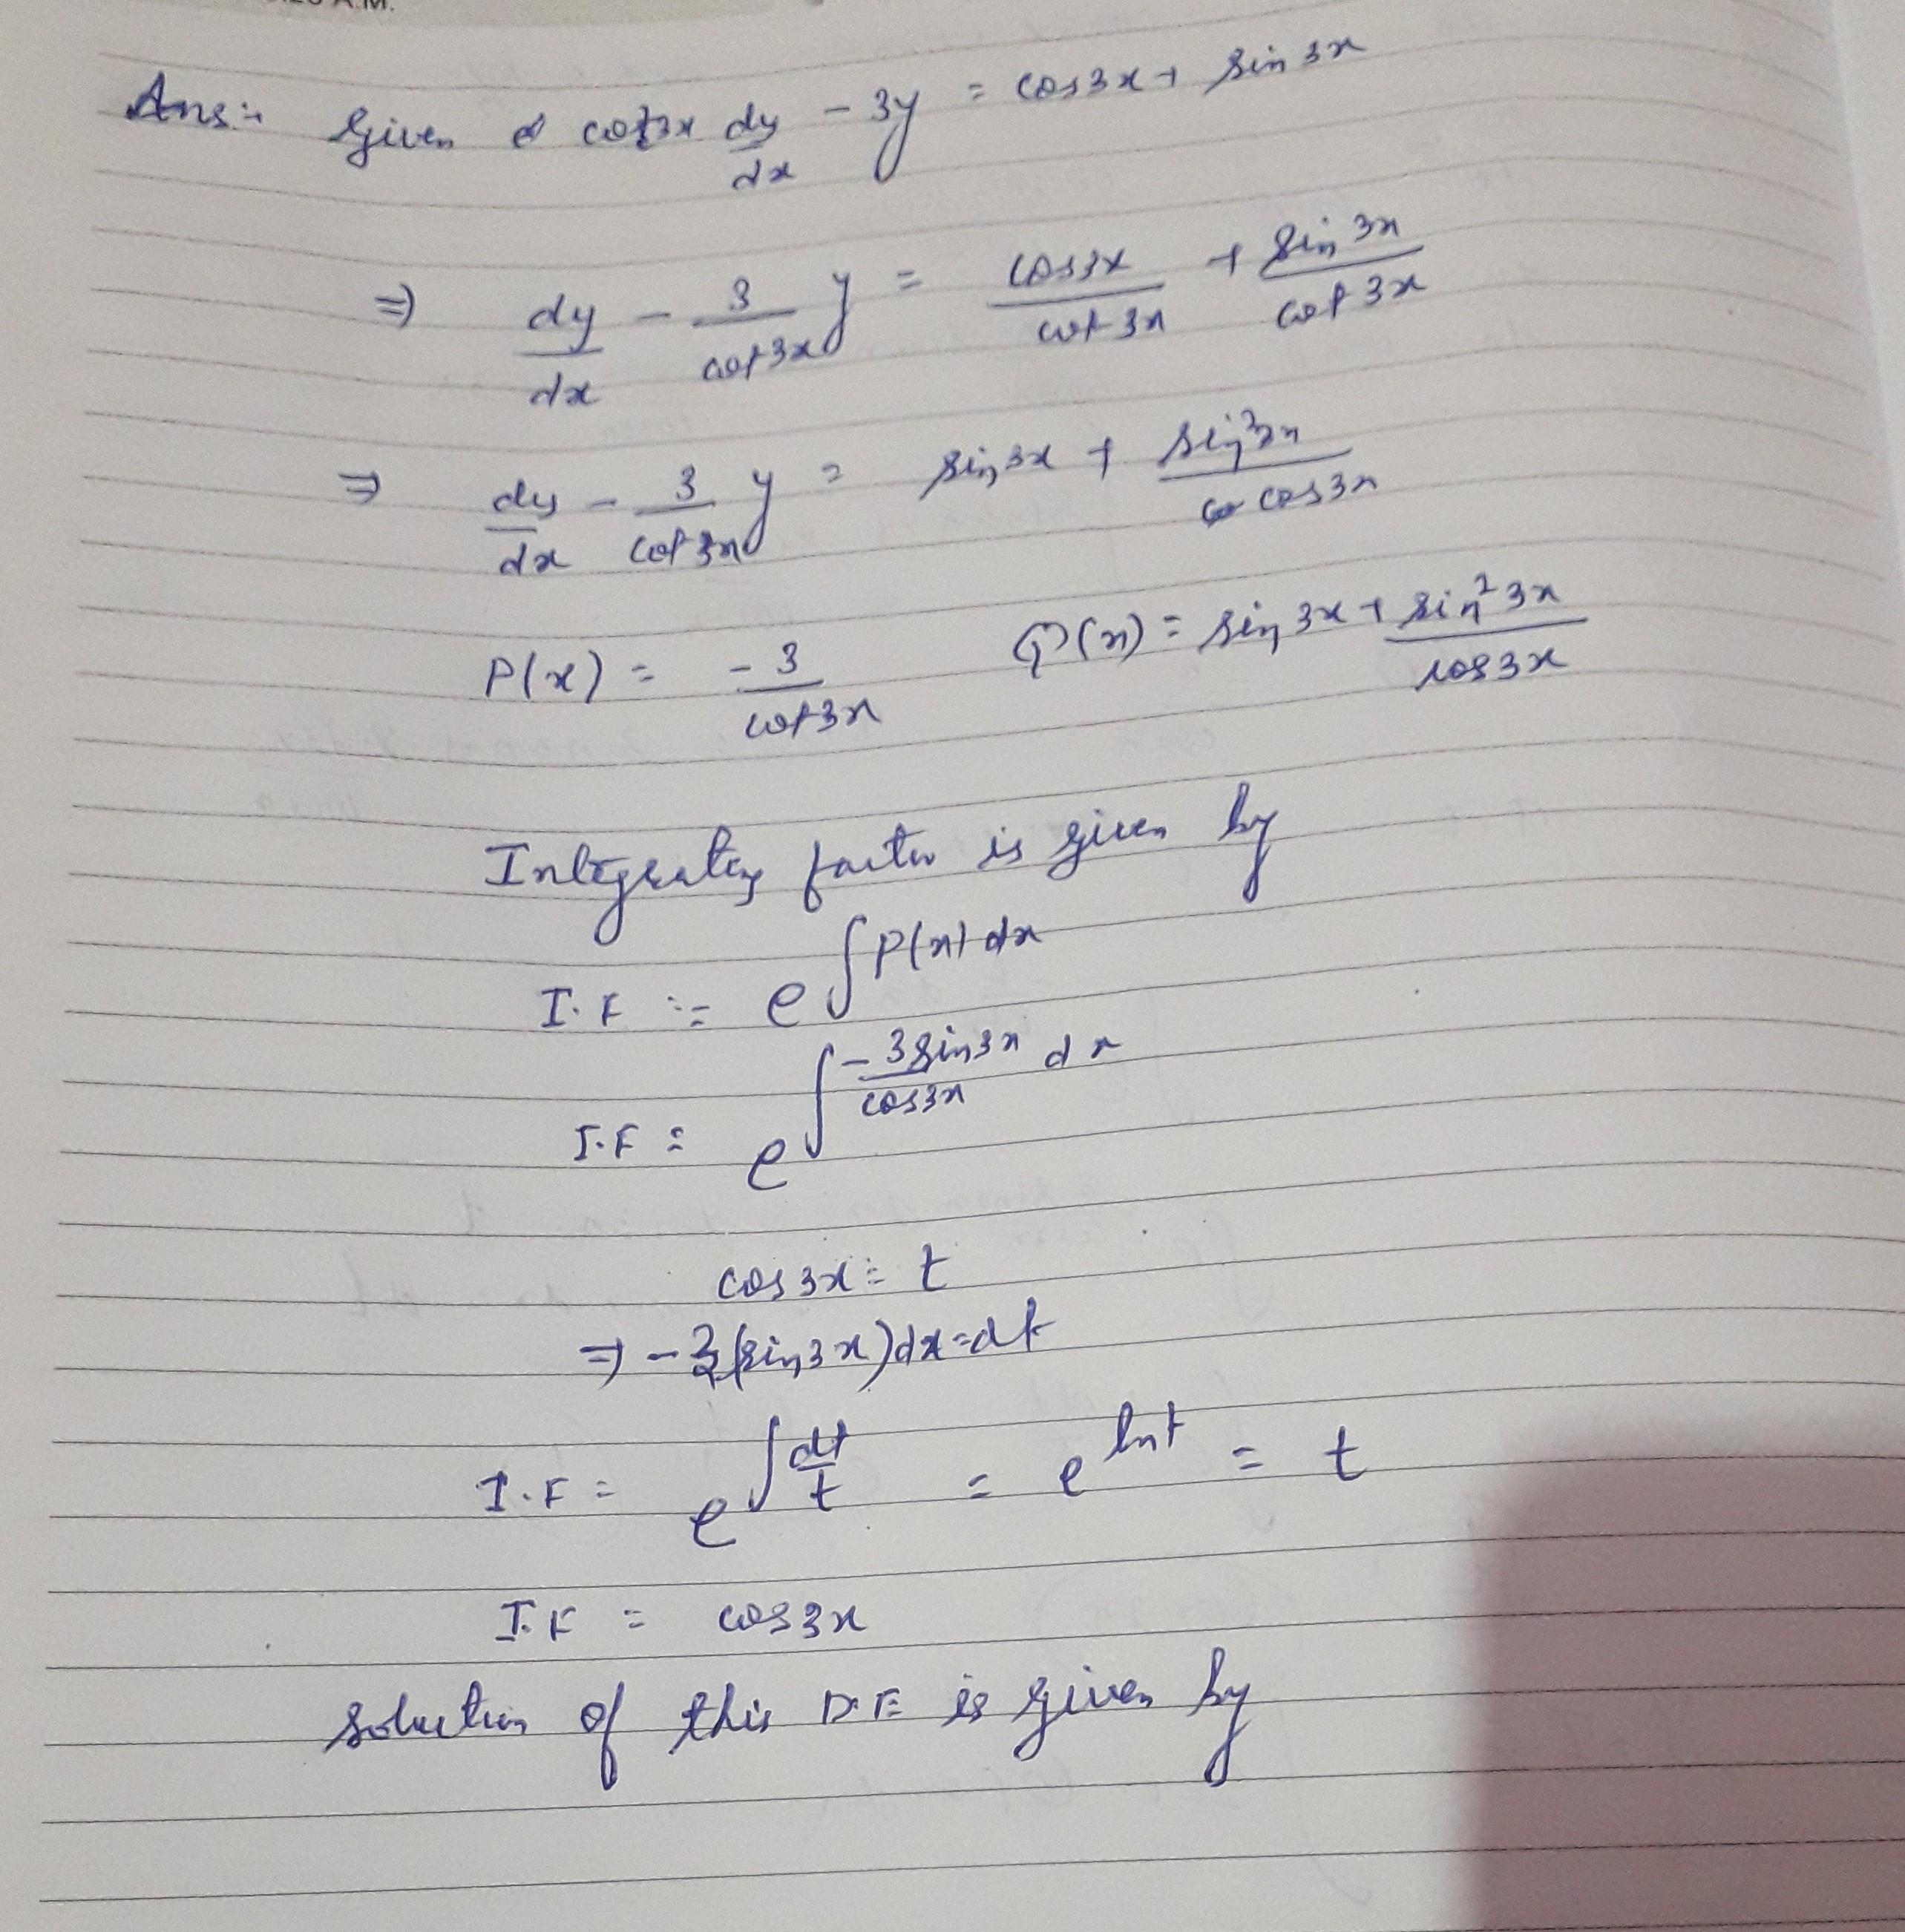 Ans:- Given cot3x dy/dx - 3y = cos3x + sin3x
⇒ dy/dx - 3/cot3x y = cos3x/cot3x + sin3x/cot3x
⇒ dy/dx - 3/cot3x y = sin3x + sin²3x/cos3x
P(x) = -3/cot3x Q(x) = sin3x + sin²3x/cos3x
Integrating factor is given by
I.F = e^∫P(x)dx
I.F = e^∫-3sin3x/cos3x dx
cos3x = t
⇒ -3(sin3x)dx = dt
I.F = e^∫dt/t = e^lnt = t
I.F = cos3x
solution of this D.E is given by